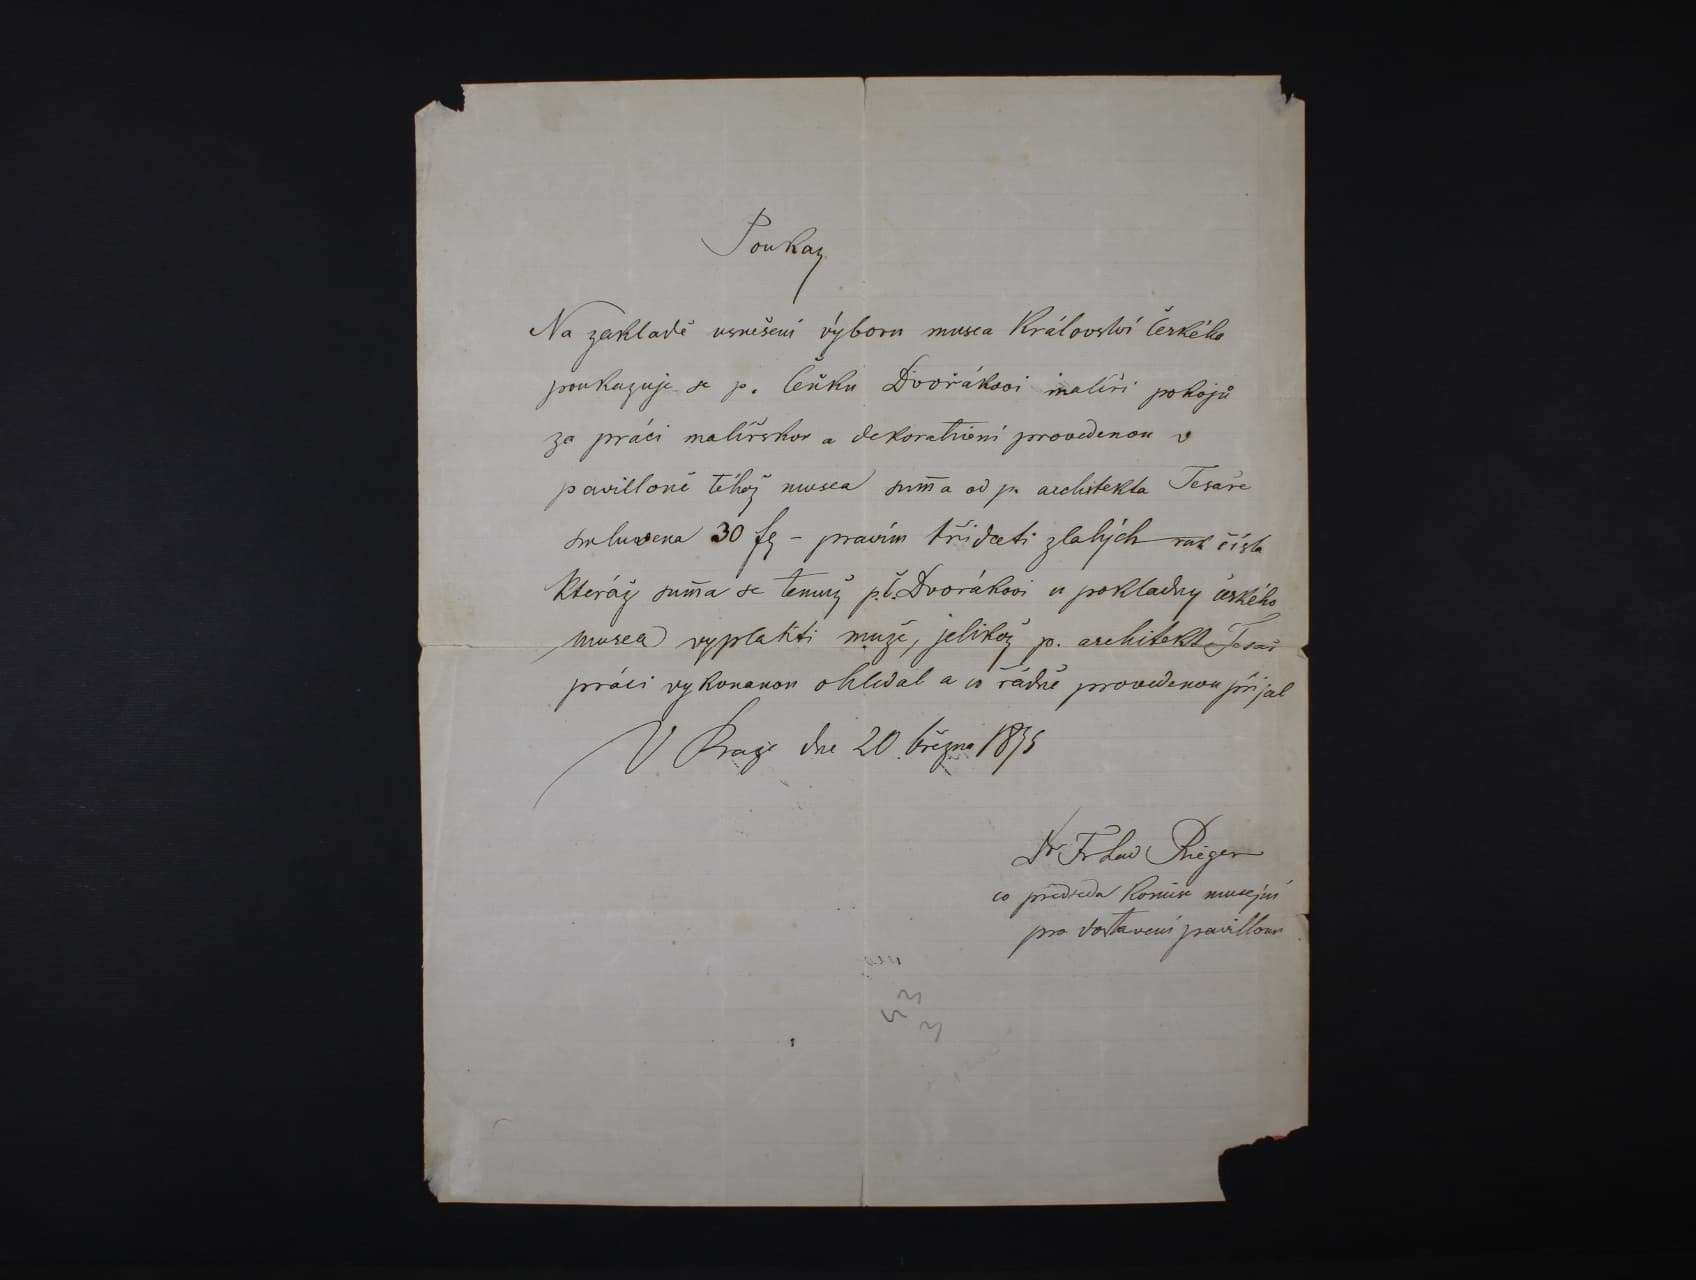 Poukaz
Na zakladě usnešení výboru musea Království českého
poukazuje se p. Čeňku Dvořákovi malíři pokojů
za práci malířskou a dekorativní provedenou v
pavilloně téhož musea summa od p. architekta Tesaře
smluvena 30 fl – pravím třidceti zlatých čísla
kteráž summa se temuž p. Č. Dvorákovi u pokladny českého
musea vyplatiti muže, jelikož p. architekt Tesař
práci vykonanou ohledal a co řádně provedenou přijal
V Praze dne 20 března
Dr Fr Lad Rieger
co předseda komise musejní
pro dostavení pavillonu